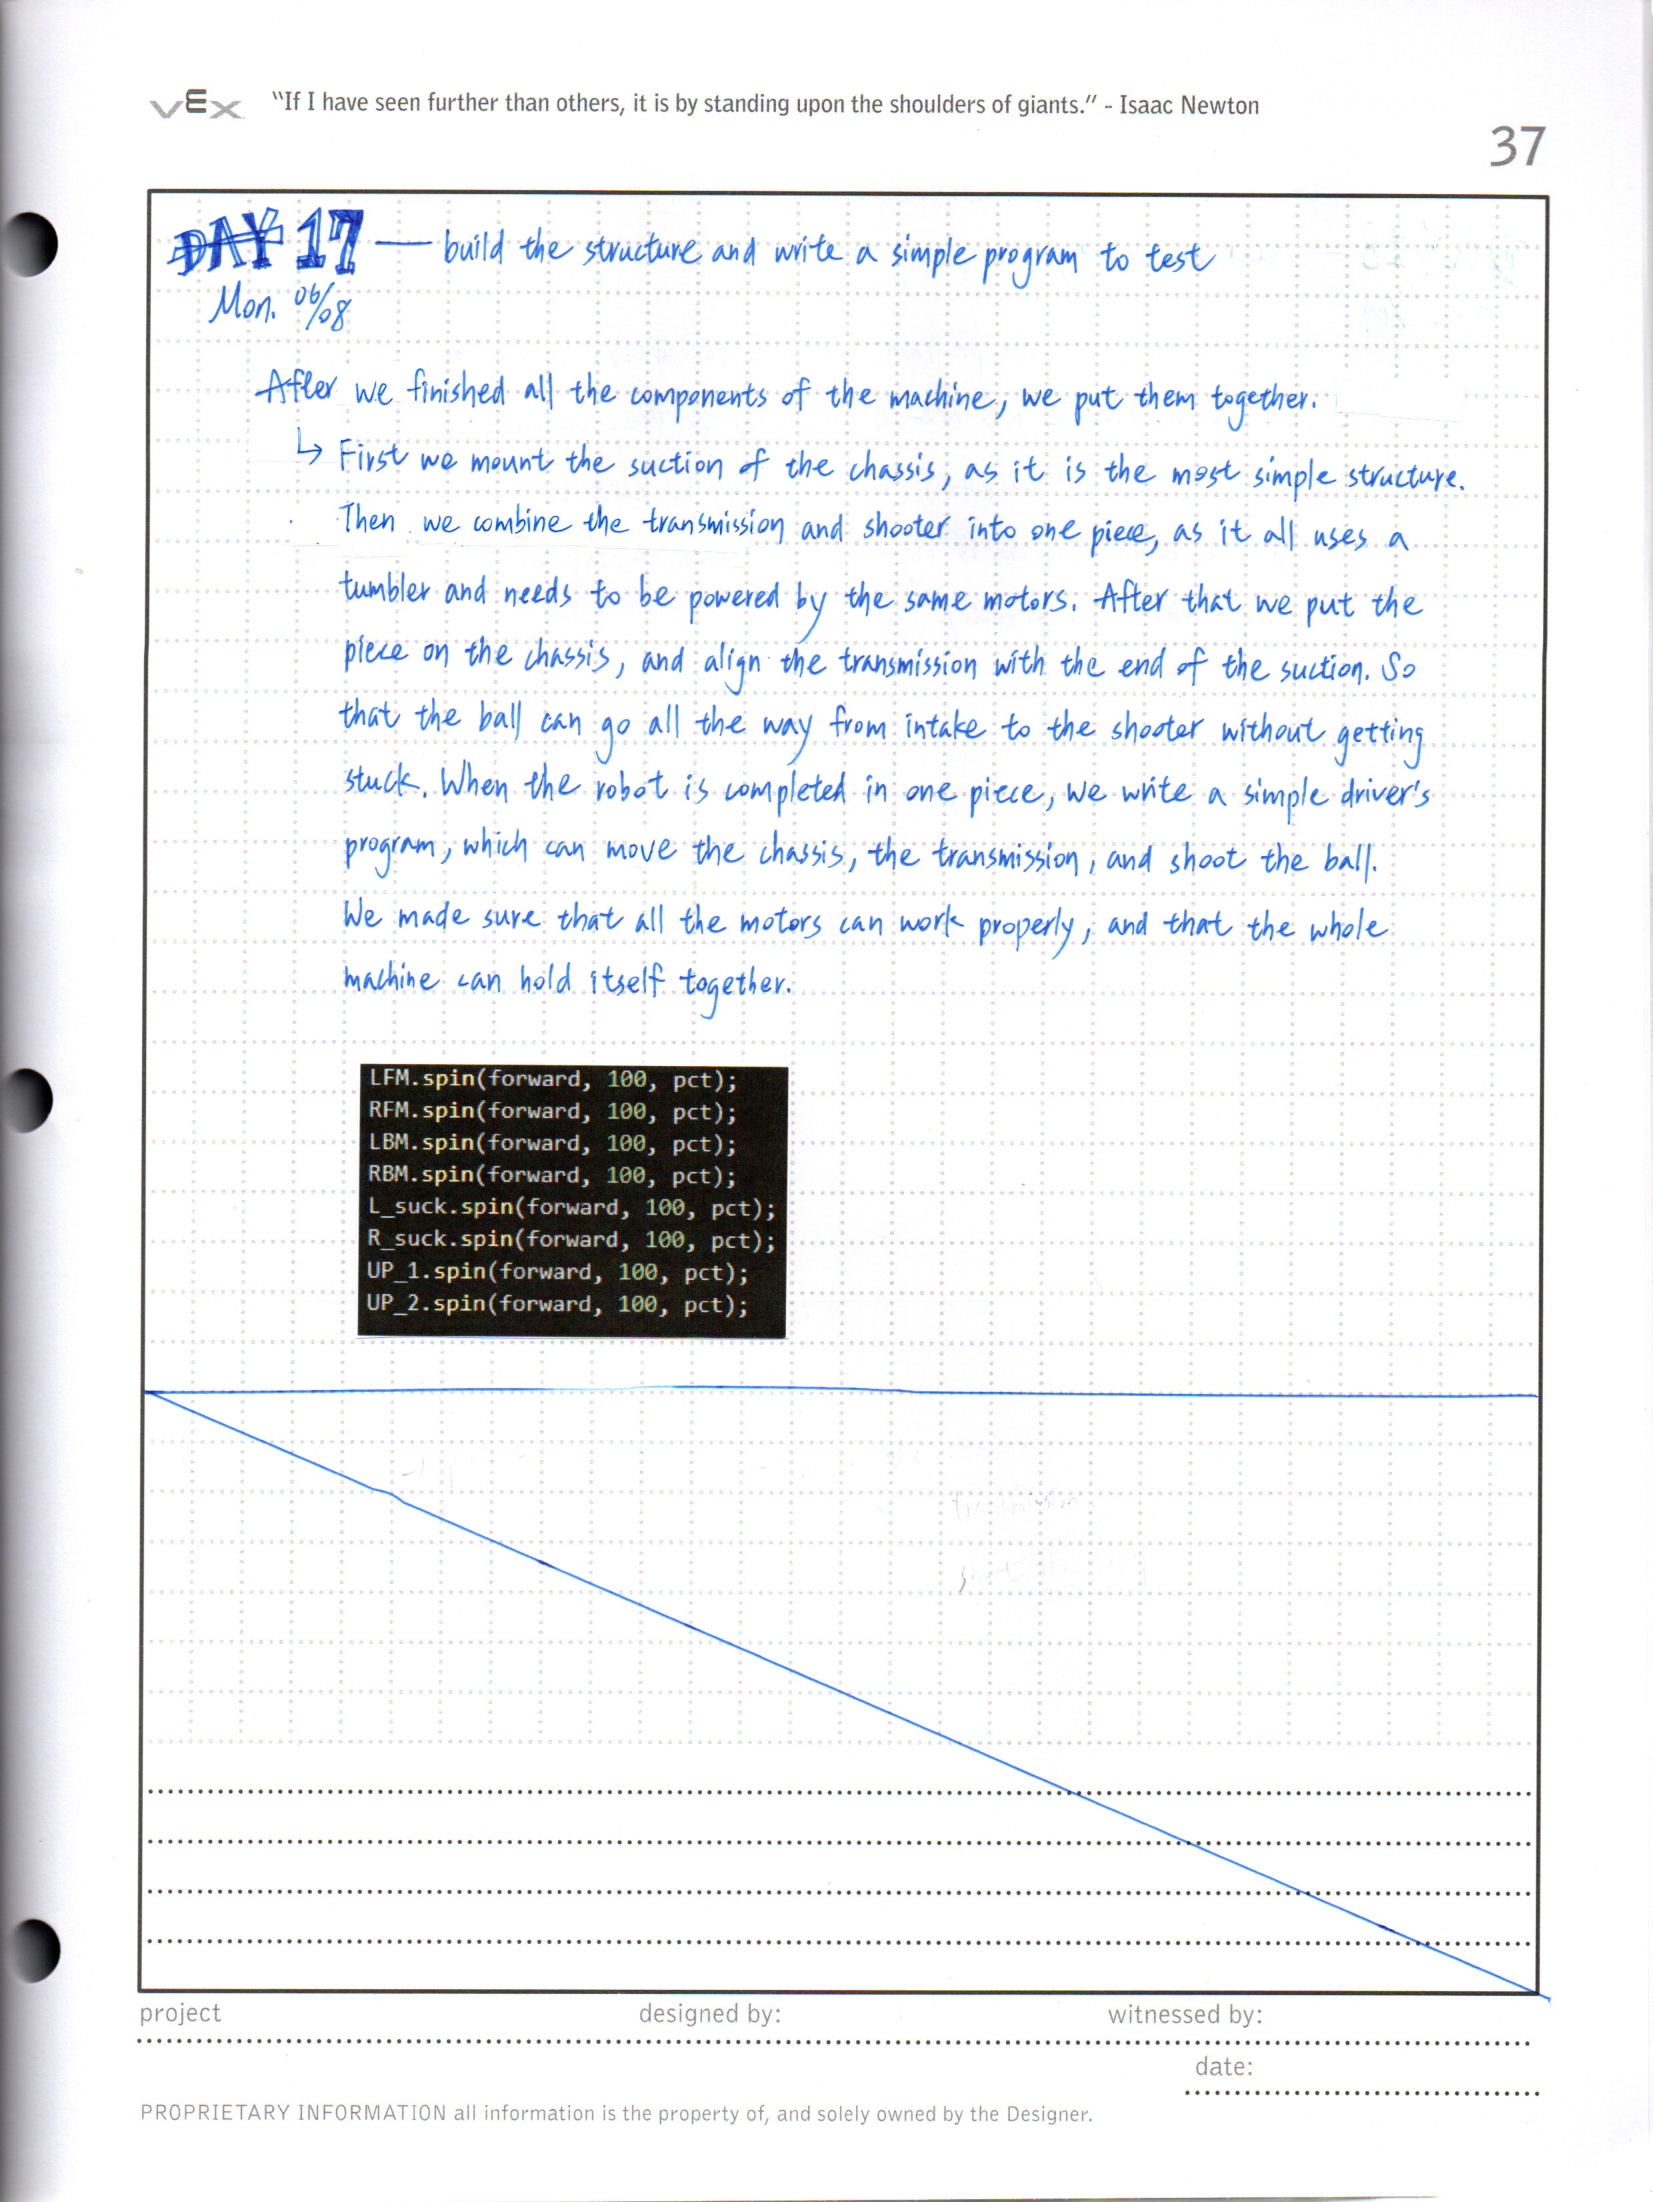 VEX "If I have seen further than others, it is by standing upon the shoulders of giants." - Isaac Newton
37
DAY 17 — build the structure and write a simple program to test
Mon. 06/08
After we finished all the components of the machine, we put them together.
↳ First we mount the suction of the chassis, as it is the most simple structure.
Then we combine the transmission and shooter into one piece, as it all uses a
tumbler and needs to be powered by the same motors. After that we put the
piece on the chassis, and align the transmission with the end of the suction. So
that the ball can go all the way from intake to the shooter without getting
stuck. When the robot is completed in one piece, we write a simple driver's
program, which can move the chassis, the transmission, and shoot the ball.
We made sure that all the motors can work properly, and that the whole
machine can hold itself together.
LFM.spin(forward, 100, pct);
RFM.spin(forward, 100, pct);
LBM.spin(forward, 100, pct);
RBM.spin(forward, 100, pct);
L_suck.spin(forward, 100, pct);
R_suck.spin(forward, 100, pct);
UP_1.spin(forward, 100, pct);
UP_2.spin(forward, 100, pct);
transmission
project designed by: witnessed by:
date:
PROPRIETARY INFORMATION all information is the property of, and solely owned by the Designer.